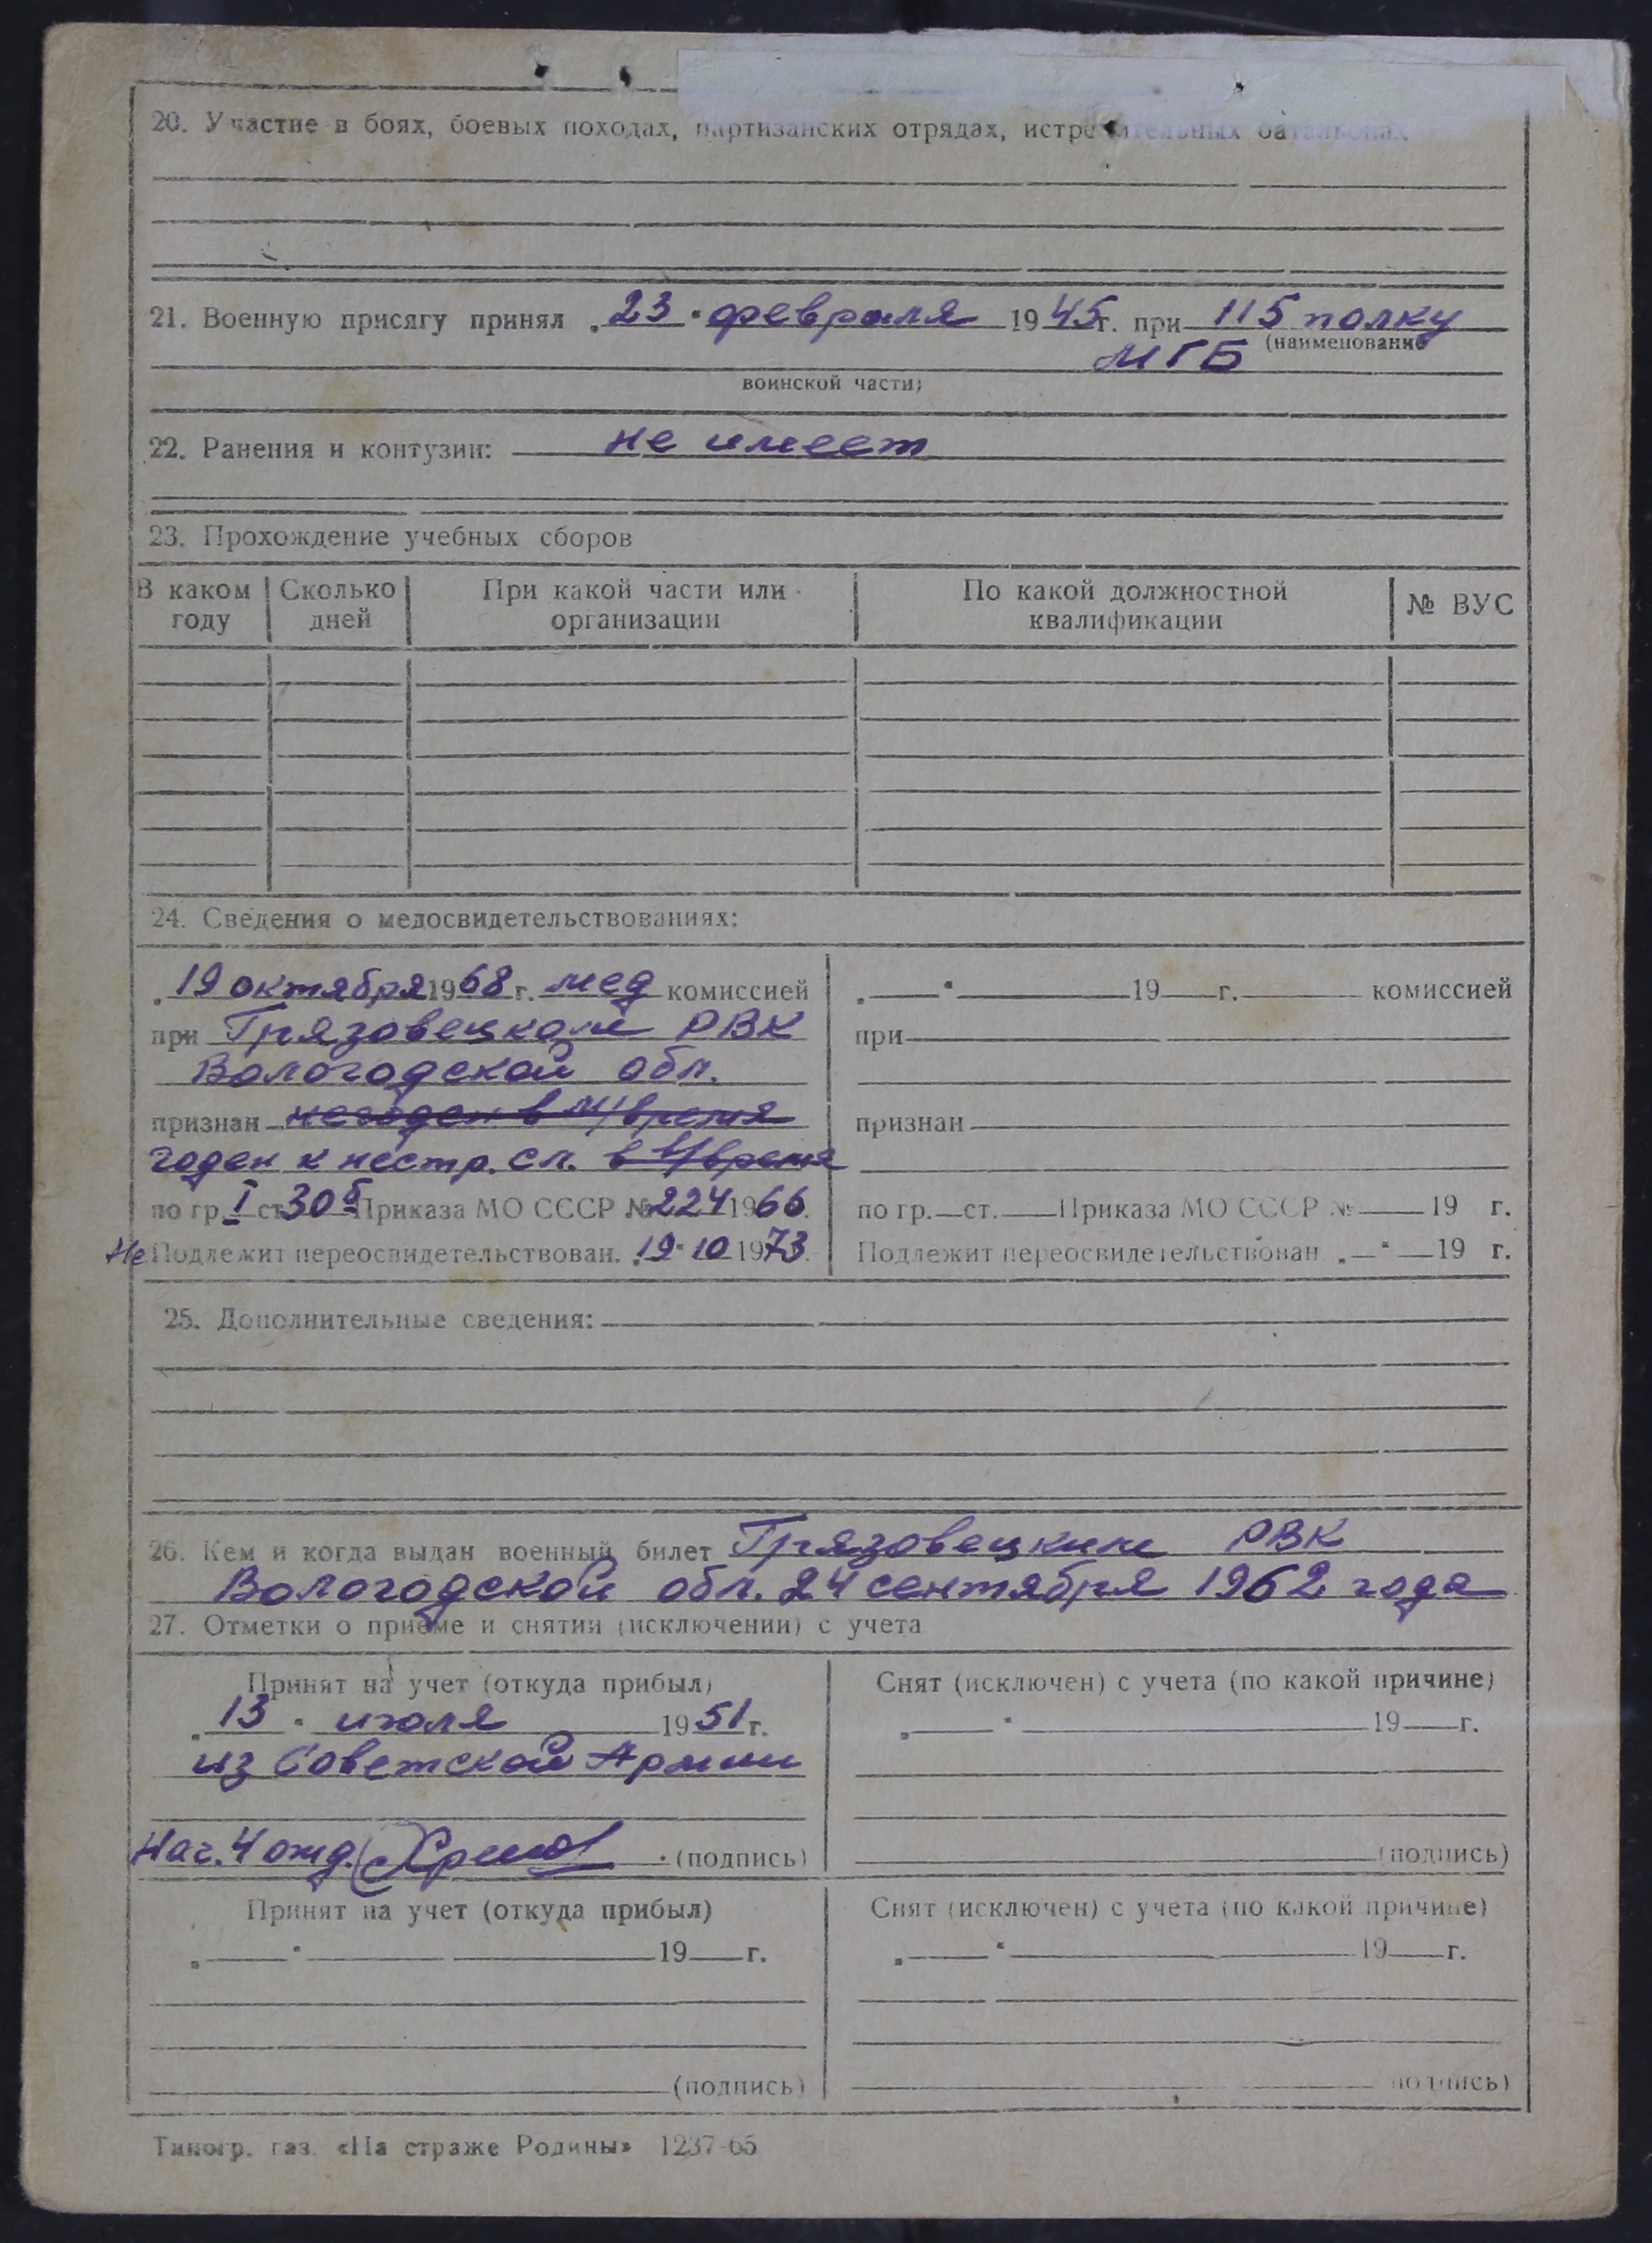 20. Участие в боях, боевых походах, партизанских отрядах, истребительных батальонах
21. Военную присягу принял „23“ февраля 1945г. при 115 полку
МГБ (наименование
воинской части)
22. Ранения и контузии: не имеет
23. Прохождение учебных сборов
В каком году | Сколько дней | При какой части или организации | По какой должностной квалификации | № ВУС
24. Сведения о медосвидетельствованиях:
19 октября 1968 г. мед комиссией
при Грязовецком РВК
Вологодской обл.
признан негоден в м/время
годен к нестр. сл. в в/время
по гр. I ст. 30б Приказа МО СССР № 224 1966.
Не Подлежит переосвидетельствован. „19“ 10 1973.
„ “ 19 г. комиссией
при
признан
по гр. ст. Приказа МО СССР № 19 г.
Подлежит переосвидетельствован „ “ 19 г.
25. Дополнительные сведения:
26. Кем и когда выдан военный билет Грязовецким РВК
Вологодской обл. 24 сентября 1962 года
27. Отметки о приеме и снятии (исключении) с учета
Принят на учет (откуда прибыл)
„13“ июля 1951 г.
из Советской Армии
Нач. 4 отд. (подпись)
Снят (исключен) с учета (по какой причине)
„ “ 19 г.
(подпись)
Принят на учет (откуда прибыл)
„ “ 19 г.
(подпись)
Снят (исключен) с учета (по какой причине)
„ “ 19 г.
подпись)
Типогр. газ. «На страже Родины» 1237-65